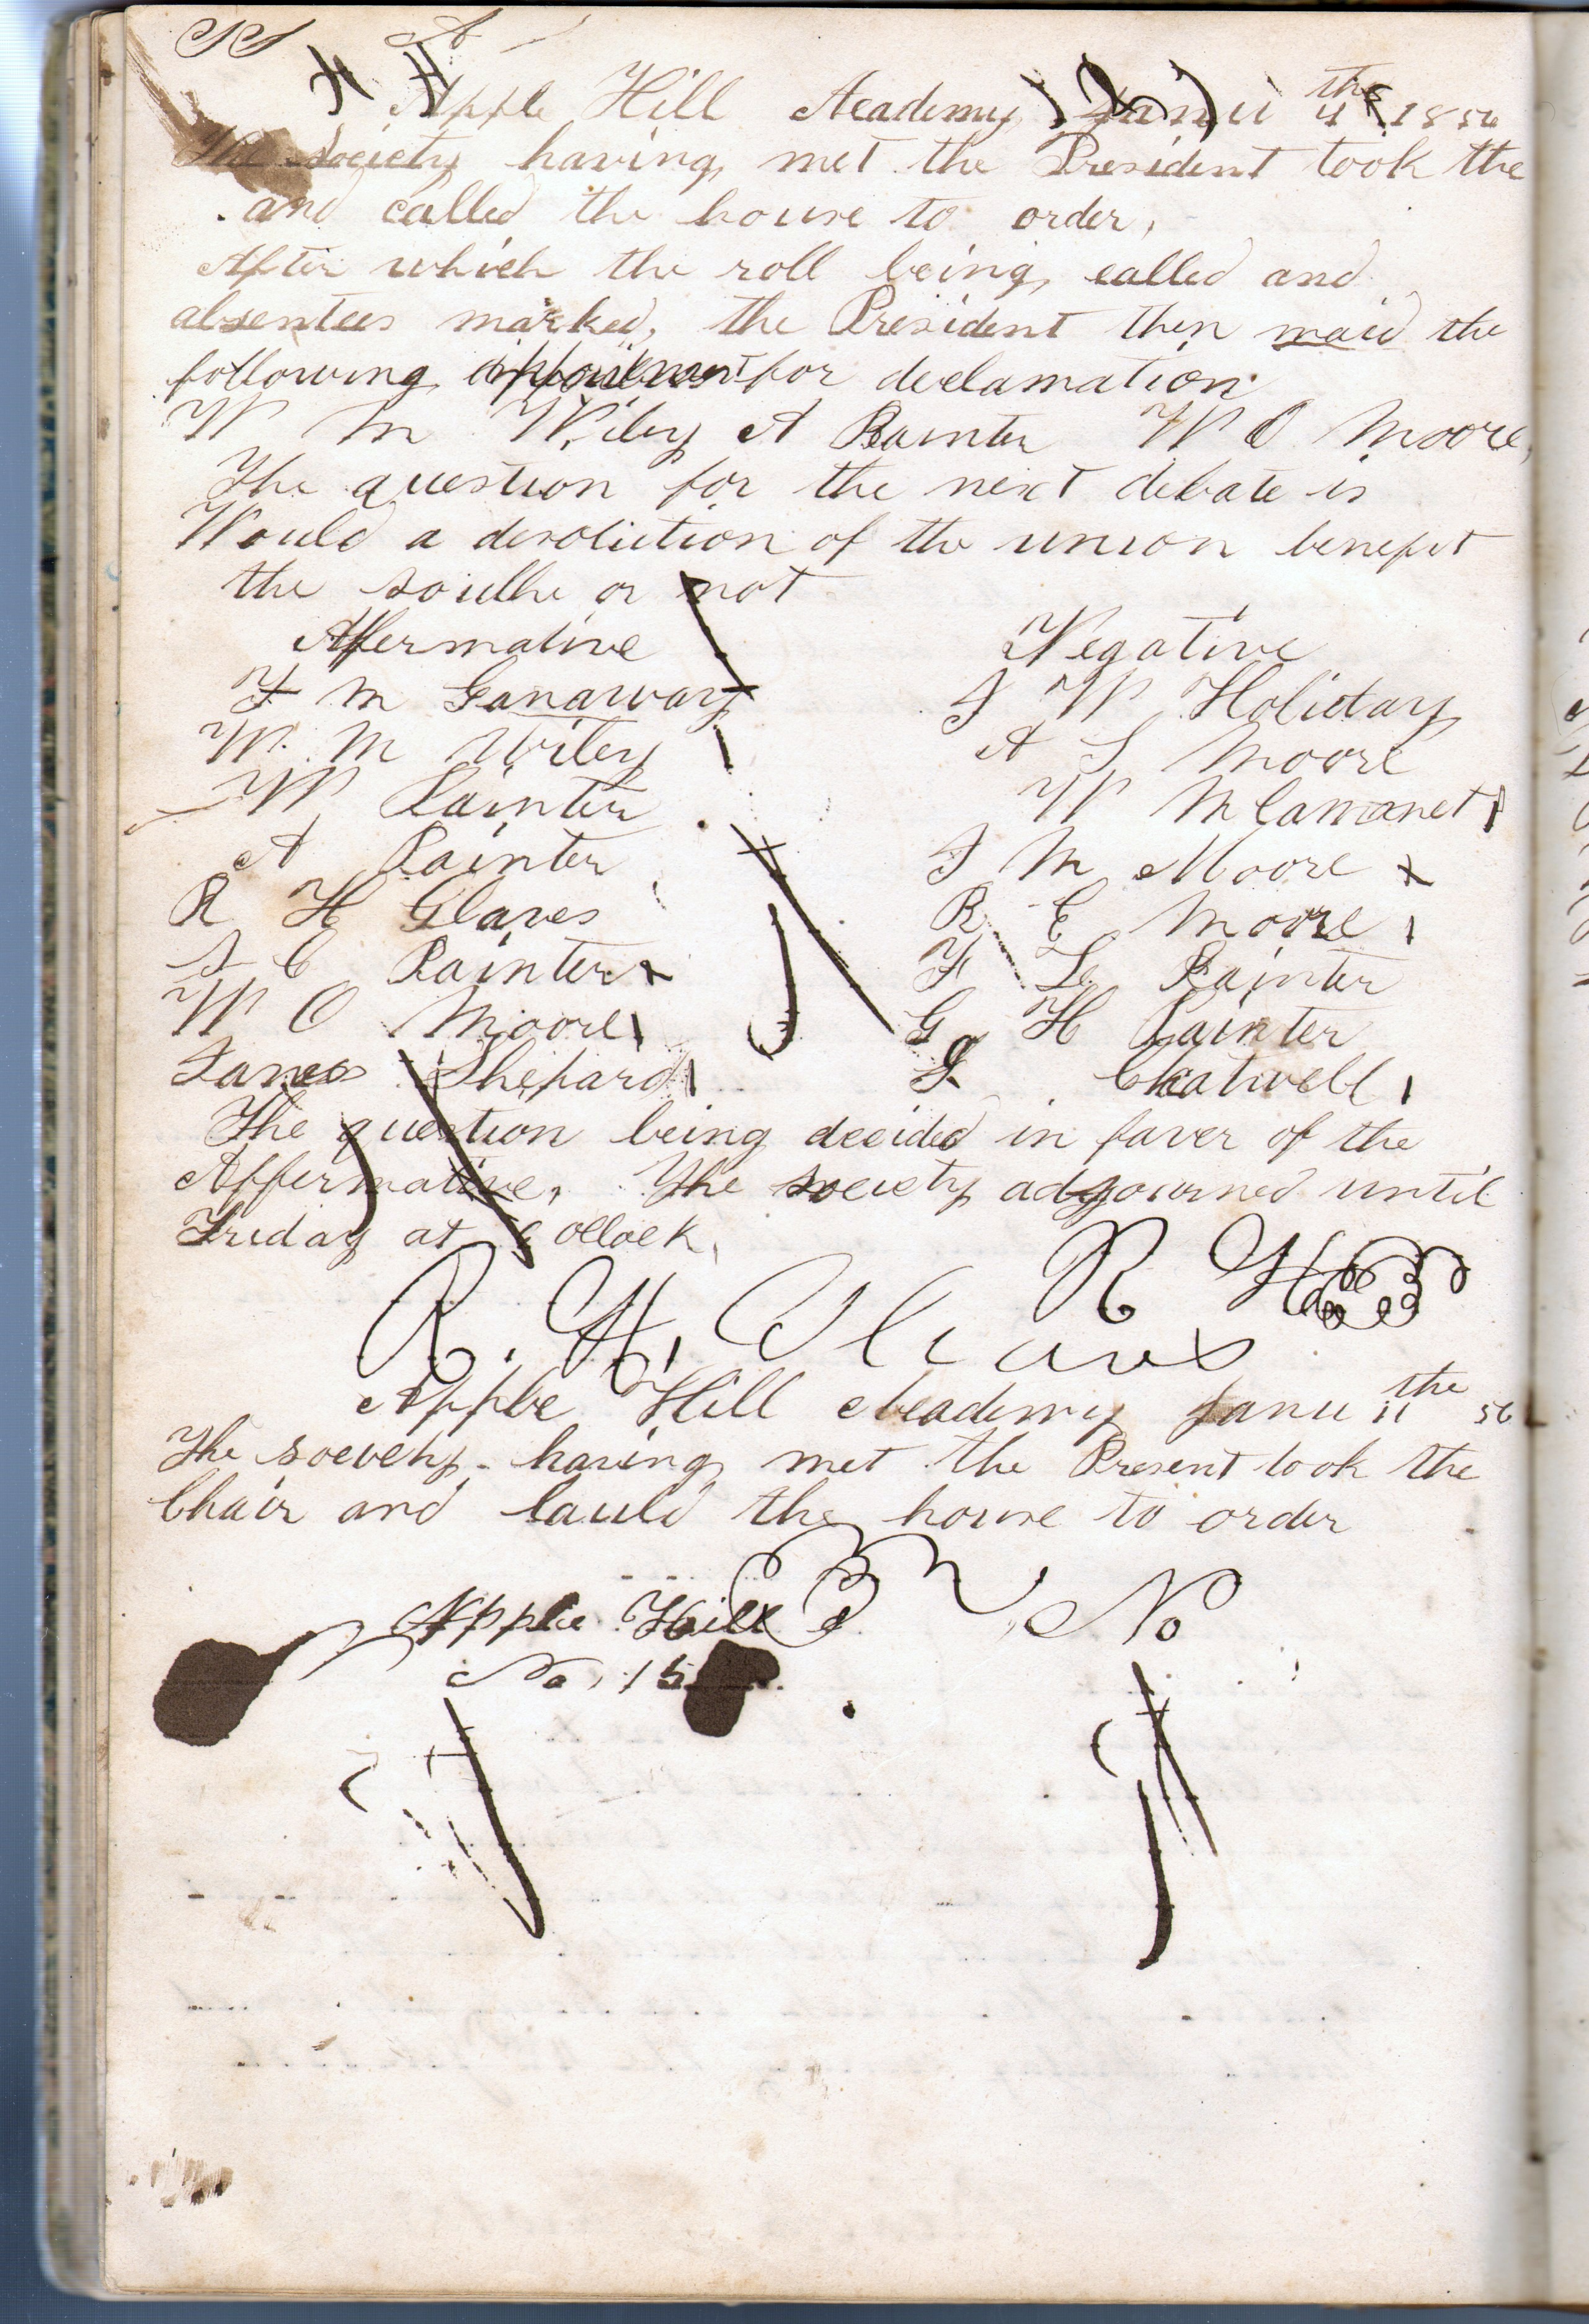 Apple Hill Academy Janu 4 the 1856
The society having met the President took the
and called the house to order,
After which the roll being called and
absentees marked, the President then maid the
following appointment for declamation
W M Wiley A Painter W O Moore,
The question for the next debate is
Would a desolution of the union benefit
the southe or not
Affermative Negative
F M Ganaway J W Holiday
W. M Wiley A S Moore
W Painter W M Camanet
A Painter J M Moore x
R H Glaves R E Moore
S C Painter x F L Painter
W O Moore G H Painter
James Shepard J Chatwell
The question being decided in faver of the
Affermative, The society adjourned until
Friday at 6 ollock,
R H
R. H. Glaves
Apple Hill Academy Janu 11 the 56
The socvety having met the Present took the
Chair and cauld the house to order
Apple Hill No
No, 15